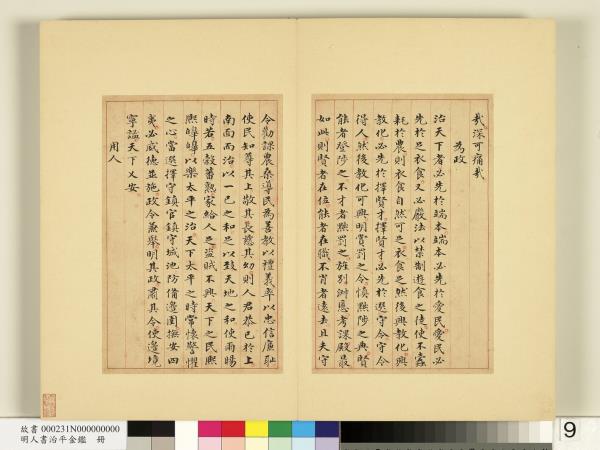 哉深可痛哉
為政
治天下者必先於端本端本必先於愛民愛民必
先於足衣食又必嚴法以禁制遊食之徒使不蠹
耗於農則衣食自然可足衣食足然後興教化興
教化必先於擇賢才擇賢才必先於選守令守令
得人然後教化可興明賞罰之令慎黜陟之典賢
能者登陟之不才者黜罰之旌別淑慝考課殿最
如此則賢者在位能者在職不肖者遠去且夫守
令勸課農桑導民為善教以禮義率以忠信廉恥
使民知尊其上敬其長慈其幼則人君恭已於上
南面而治以一已之和足以致天地之和使雨暘
時若五穀蕃熟家給人足盜賊不興天下之民熙
熙皞皞以樂太平之治天下太平之時常懷警懼
之心當選擇守鎮官鎮守城池防備邊圉撫安四
夷必威德並施政令兼舉明其政肅其令使邊境
寧謐天下乂安
用人
故書 000231N000000000
明人書治平金鑑 冊
9